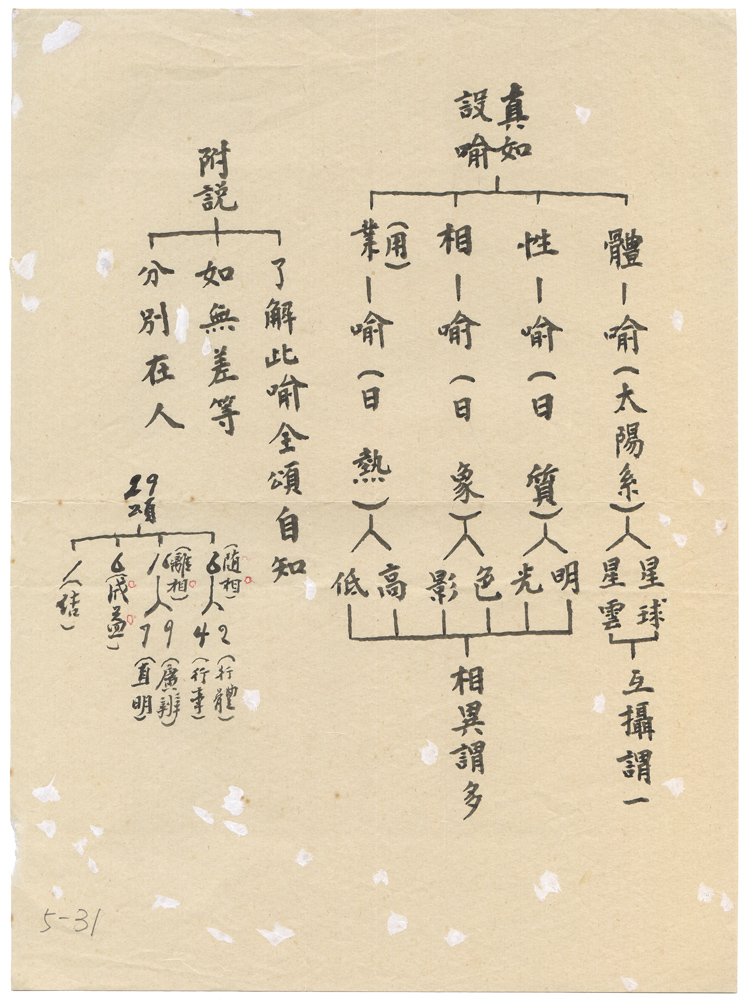 真如
設喻
體－喻（太陽系）
星球
星雲
互攝謂一
性－喻（日質）
明
光
相－喻（日象）
色
影
業（用）－喻（日熱）
高
低
相異謂多
附說
了解此喻全頌自知
如無差等
分別在人
29頌
6（隨相）
2（行體）
4（行事）
16（離相）
9（廣辨）
7（直明）
6（成益）
1（結）
5-31